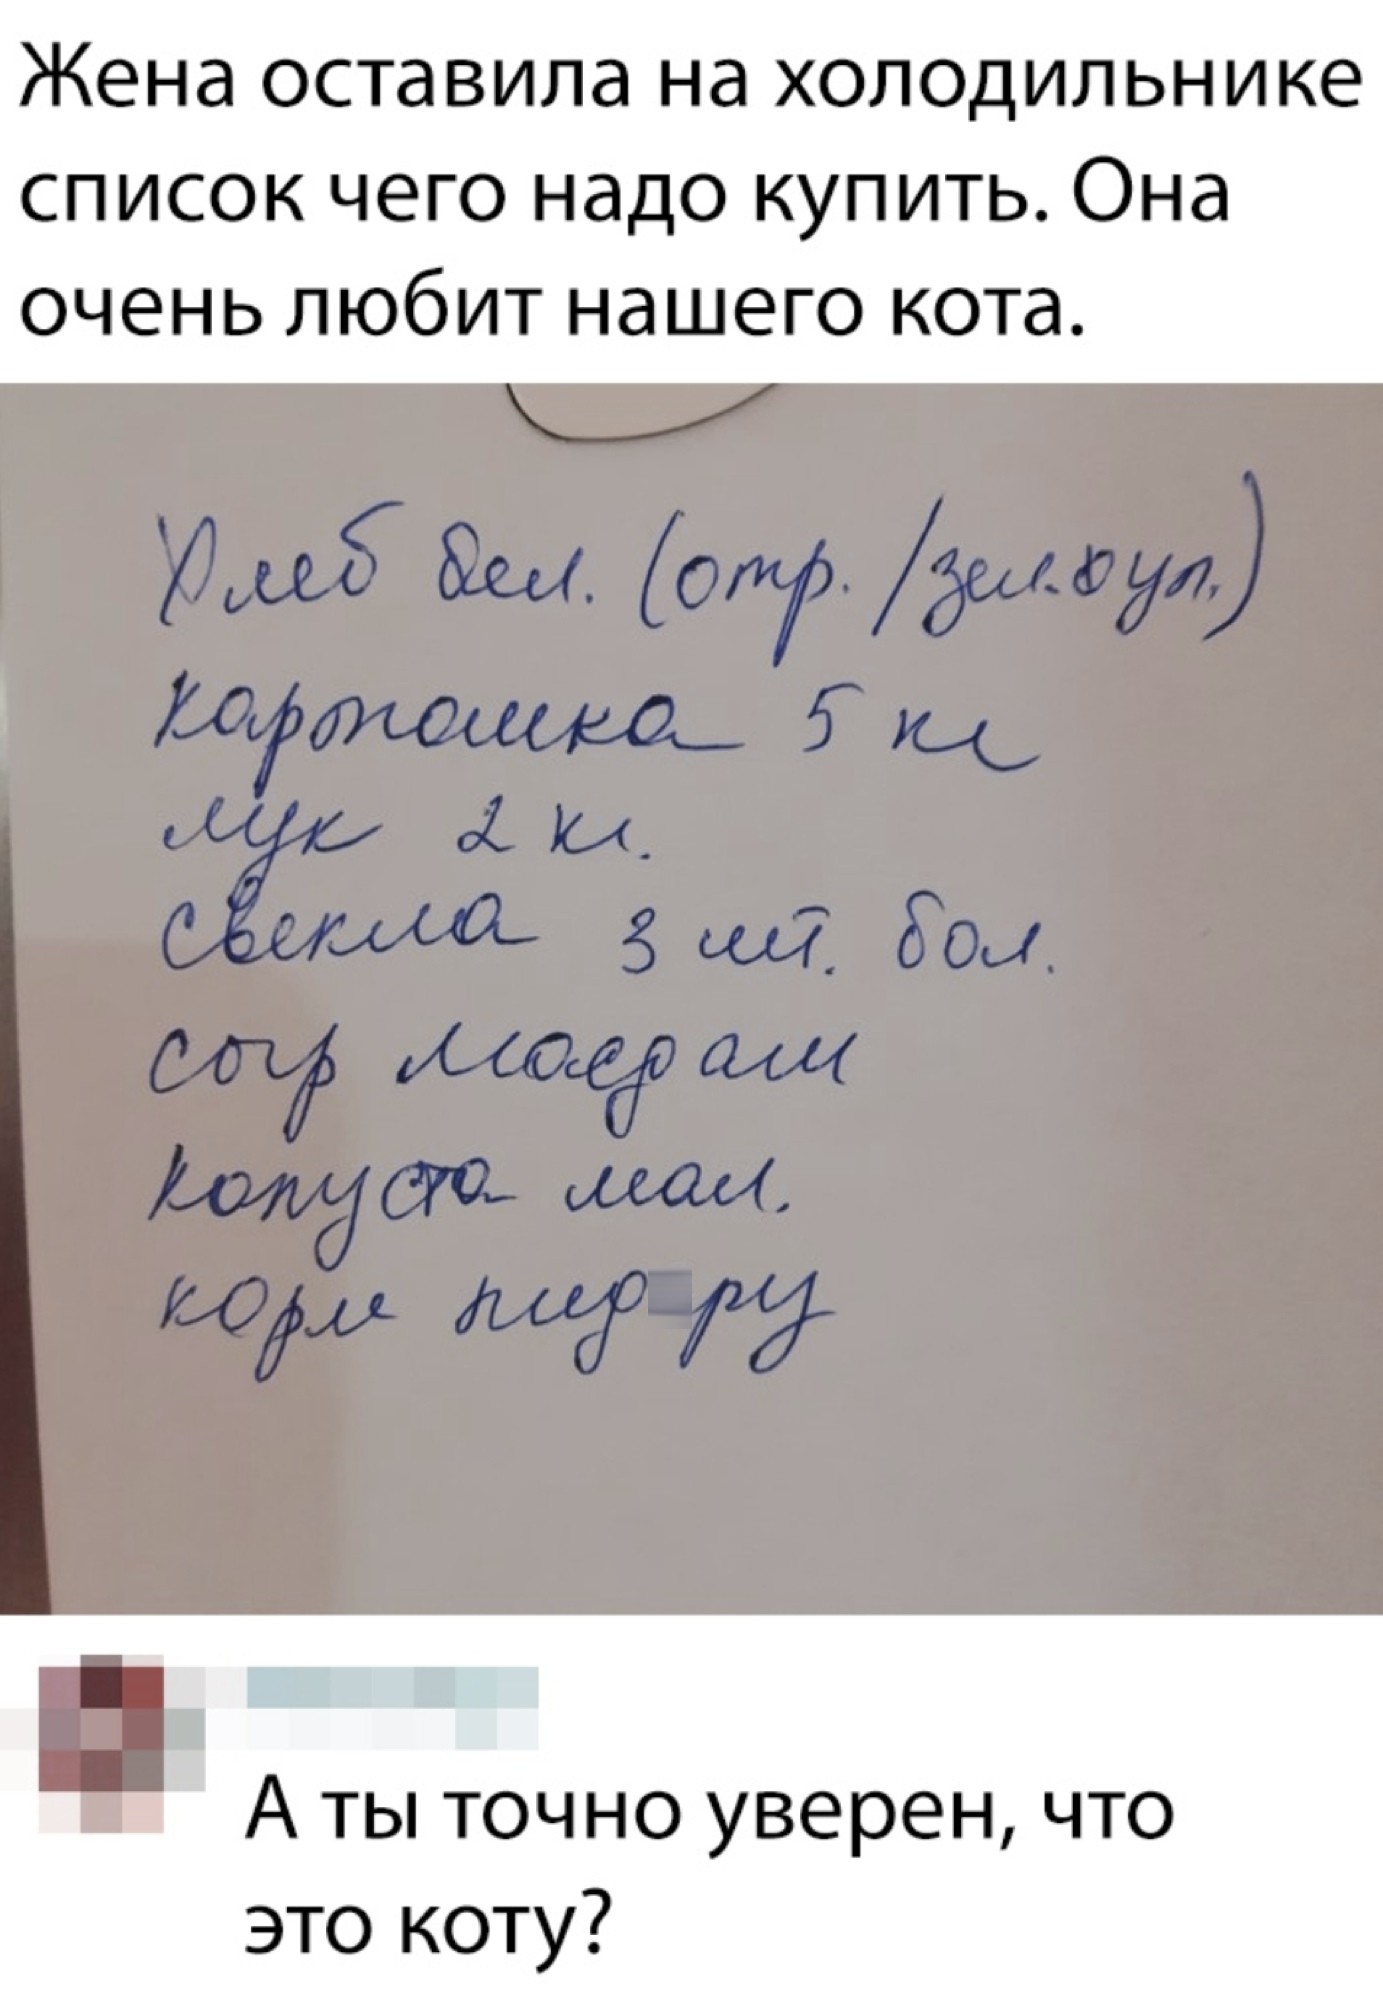 Жена оставила на холодильнике
список чего надо купить. Она
очень любит нашего кота.
Хлеб бел. (отр. /зел. бул.)
картошка 5 кг
лук 2 кг.
свекла 3 шт. бол.
сыр маасдам
капуста мал.
корм пид ру
А ты точно уверен, что
это коту?